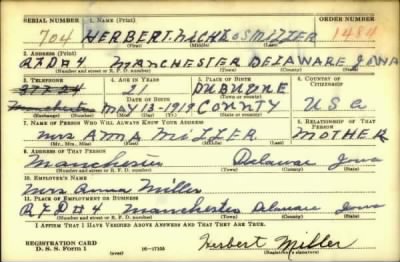 SERIAL NUMBER 1. NAME (Print) ORDER NUMBER
704 HERBERT. NICHLOS MILLER 1484
(First) (Middle) (Last)
2. ADDRESS (Print)
R F D #4 MANCHESTER DELAWARE IOWA
(Number and street or R. F. D. number) (Town) (County) (State)
3. TELEPHONE 4. AGE IN YEARS 5. PLACE OF BIRTH 6. COUNTRY OF CITIZENSHIP
21 DUBUQUE
Manchester DATE OF BIRTH
MAY 13-1919 COUNTY U S a
(Exchange) (Number) (Mo.) (Day) (Yr.) (State or country)
7. NAME OF PERSON WHO WILL ALWAYS KNOW YOUR ADDRESS 8. RELATIONSHIP OF THAT PERSON
Mrs ANNA MILLER MOTHER
(Mr., Mrs., Miss) (First) (Middle) (Last)
9. ADDRESS OF THAT PERSON
Manchester Delaware Iowa
(Number and street or R. F. D. number) (Town) (County) (State)
10. EMPLOYER'S NAME
Mrs Anna Miller
11. PLACE OF EMPLOYMENT OR BUSINESS
R F D #4 Manchester Delaware Iowa
(Number and street or R. F. D. number) (Town) (County) (State)
I AFFIRM THAT I HAVE VERIFIED ABOVE ANSWERS AND THAT THEY ARE TRUE.
REGISTRATION CARD
D. S. S. Form 1 Herbert Miller
(over) 16-17105 (Registrant's signature)